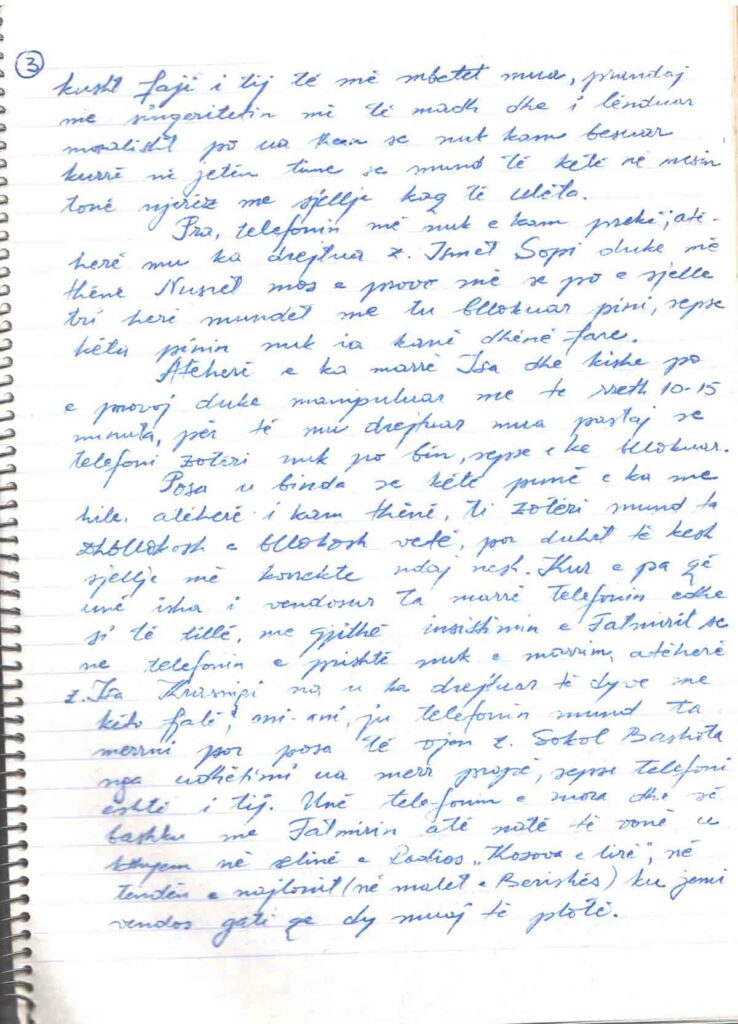 3
kusht faji i tij të më mbetet mua, prandaj
me singeritetin më të madh dhe i lënduar
moralisht po ua them se nuk kam besuar
kurrë në jetën time se mund të ketë në mesin
tonë njerëz me sjellje kaq të ulëta.
Pra, telefonin më nuk e kam prekë, atë-
herë mu ka drejtua z. Ismet Sopi duke më
thënë Nusret mos e provo më se po e sjelle
tri herë mundet me tu bllokuar pini, sepse
këta pinin nuk ia kanë dhënë fare.
Atëherë e ka marrë Isa dhe kishe po
e provoj duke manipuluar me te rreth 10-15
minuta, për të mu drejtuar mua pastaj se
telefoni zotëri nuk po bën, sepse e ke bllokuar.
Posa u binda se këtë punë e ka me
hile, atëherë i kam thënë, ti zotëri mund ta
zhbllokosh e bllokosh vetë, por duhet të kesh
sjellje më korrekte ndaj nesh. Kur e pa që
unë isha i vendosur ta marrë telefonin edhe
si të tillë, me gjithë insistimin e Fatmirit se
ne telefonin e prishtë nuk e marrim, atëherë
z. Isa Krasniqi na u ka drejtuar të dyve me
këto fjalë; ani-ani, ju telefonin mund ta
merrni por posa të vjen z. Sokol Bashota
nga udhëtimi ua merr prapë, sepse telefoni
është i tij. Unë telefonin e mora dhe së
bashku me Fatmirin atë natë të vonë u
kthyem në selinë e Radios "Kosova e lirë", në
tendën e najlonit (në malet e Berishës) ku jemi
vendos gati qe dy muaj të plotë.